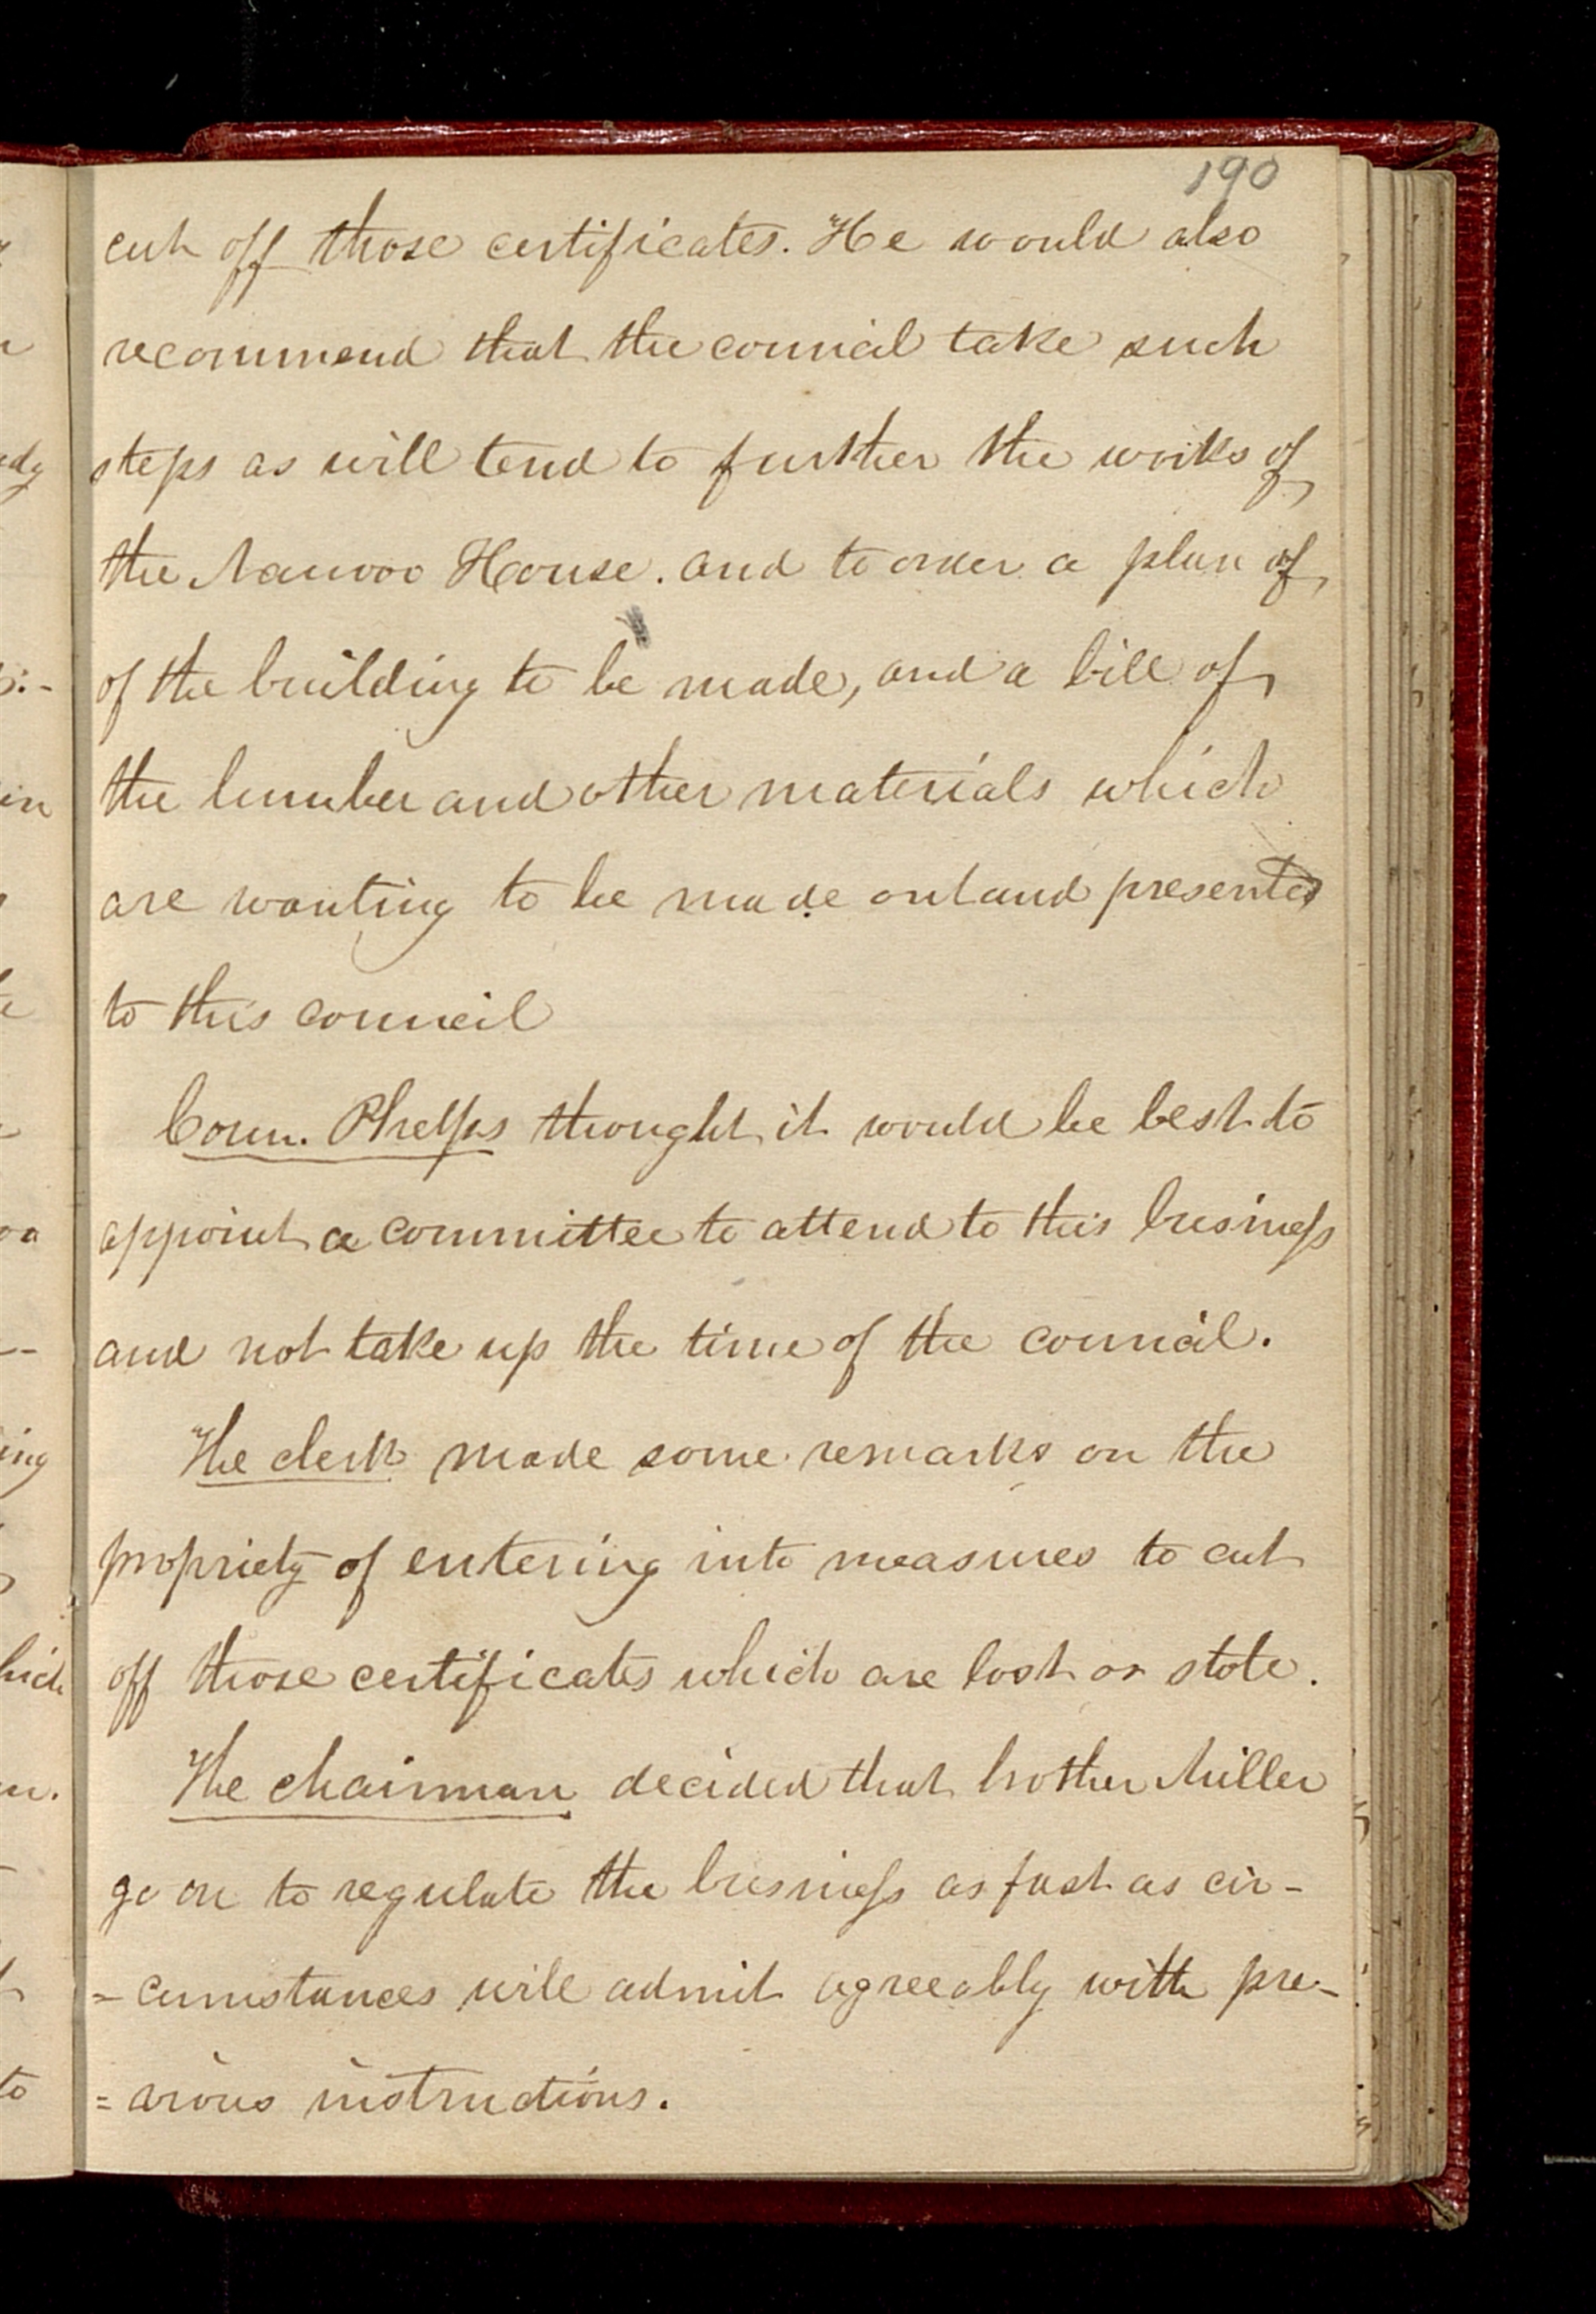 190
cut off those certificates. He would also
recommend that the council take such
steps as will tend to further the works of
the Nauvoo House. and to order a plan of
of the building to be made, and a bill of
the lumber and other materials which
are wanting to be made out and presented
to this council
Coun. Phelps thought it would be best to
appoint a committee to attend to this business
and not take up the time of the council.
The clerk made some remarks on the
propriety of entering into measures to cut
off those certificates which are lost or stole.
The chairman decided that brother Miller
go on to regulate the business as fast as cir-
=cumstances will admit agreeably with pre-
=vious instructions.